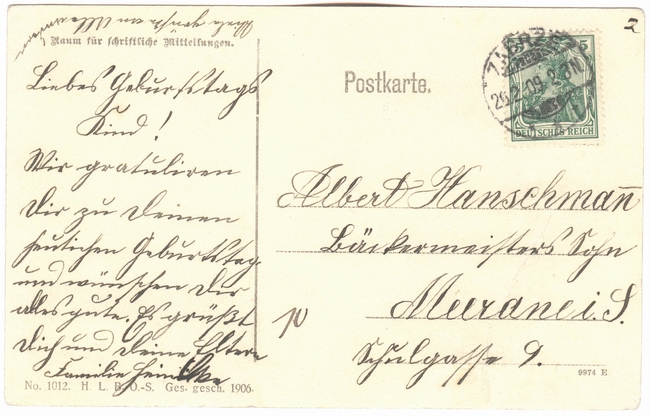 Raum für schriftliche Mitteilungen.
Liebes Geburtstags
Kind!
Wir gratuliren
Dir zu Deinen
heutichen Geburtstag
und wünschen Dir
alles gute. Es grüßt
Dich und Deine Eltern
Familie
No. 1012. H. L. B. O.-S. Ges. gesch. 1906.
Postkarte.
5
26.2.09
DEUTSCHES REICH
2
Albert Hanschmañ
Bäckermeisters Sohn
Meerane i. S.
Schulgasse 9.
9974 E